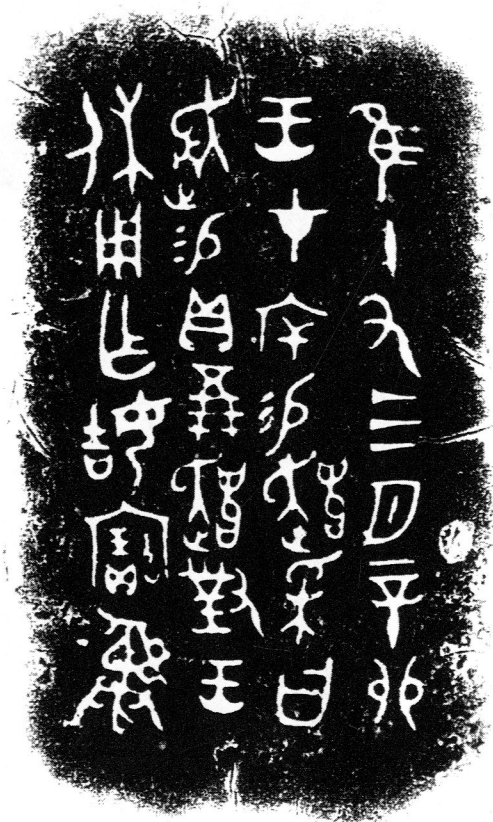 隹十又三月辛卯
王才厈易趞采曰
易貝五朋趞對王
休用乍姞寶彝